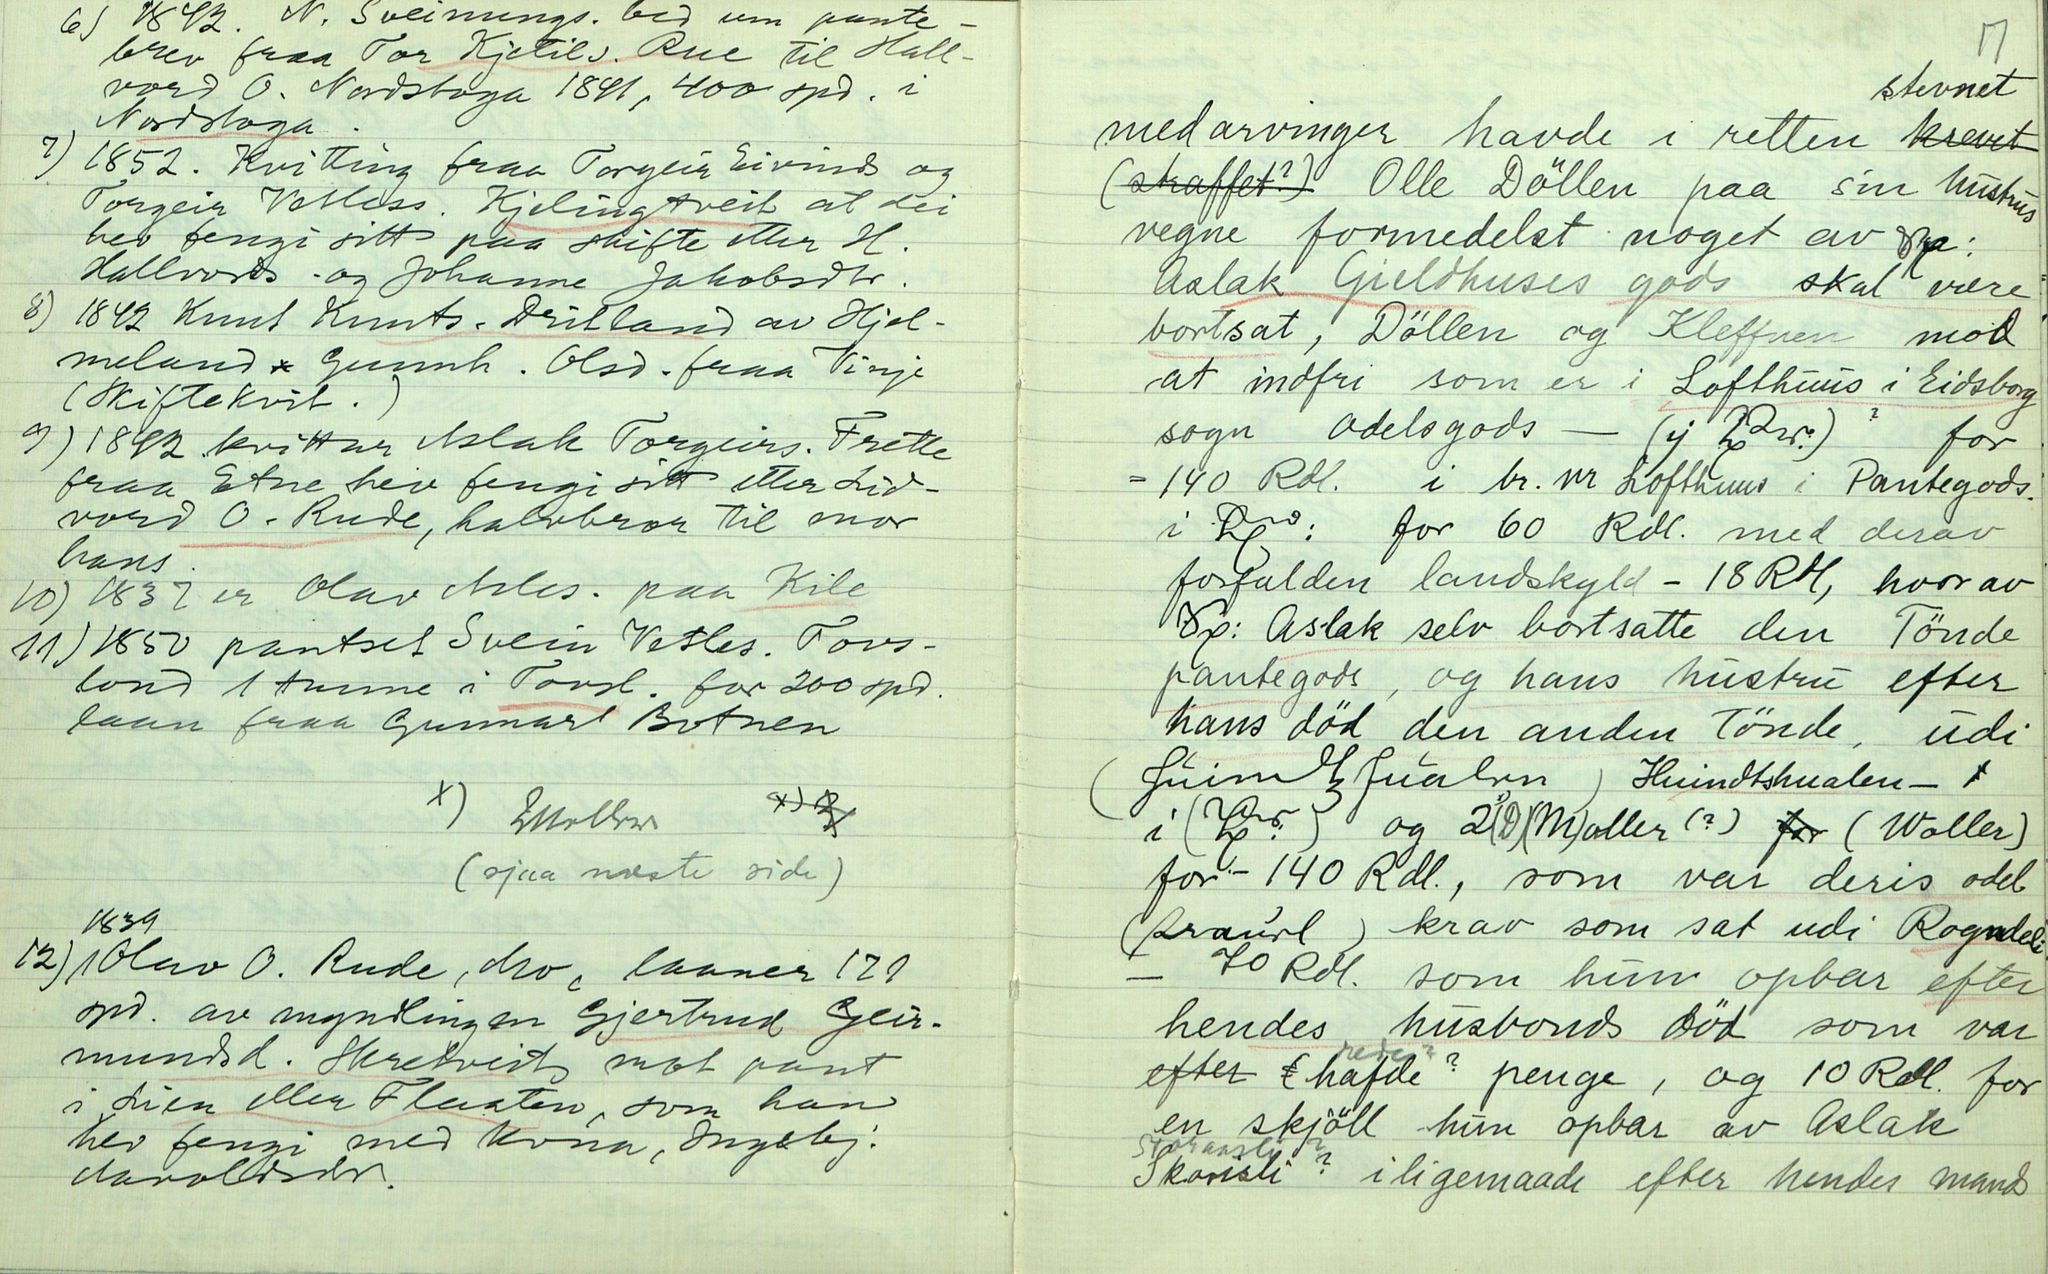 6) 1842. N. Sveinungs. bed um pante-
brev fraa Tor Kjetils. Rue til Hall-
vord O. Nordstoga 1841, 400 spd. i
Nordstoga.
7) 1852. Kvitting fraa Torgeir Eivinds og
Torgeir Vetless. Kjelingtveit at dei
hev fengi sitt paa skifte etter H.
Hallvords. og Johanne Jakobsdtr.
8) 1842 Knut Knuts. Dritland av Hjel-
meland x Gunnh. Olsd. fraa Vinje
(Skiftekvit.)
9) 1842 kvittar Aslak Torgeirs. Frette
fraa Etne hev fengi sitt etter Lid-
vord O. Rude, halvbror til mor
hans.
10) 1837 er Olav Asles. paa Kile
11) 1850 pantset Svein Vetles. Tovs-
lond 1 tunne i Tovsl. for 200 spd.
laan fraa Gunnar Botnen
x)
(sjaa næste side)
1839
12) Olav O. Rude, Mo, laaner 171
spd. av myndlingen Gjertrud Geir-
mundsd. Skretveit, mot pant
i Lien eller Flaaten, som han
hev fengi med kona, Ingebj.
17
stevnet
medarvinger havde i retten krevet
(straffet?) Olle Döllen paa sin hustrus
vegne formedelst noget av
Aslak Gieldhuses gods skal være
bortsat, Döllen og Kleffnen mod
at indfri som er i Lofthuus i Eidsborg
sogn odelsgods — (ij ) ? for
- 140 Rdl. i br. nr Lofthuus i Pantegods.
i : for 60 Rdl. med derav
forfalden landskyld - 18 Rdl, hvorav
Aslak selv bortsatte den Tönde
pantegods, og hans hustru efter
hans död den anden Tönde, udi
( ) Huindtshualen —
i ( ) og 2 (D)(M)oller (?) for (Woller)
for - 140 Rdl., som var deris odel
( ) krav som sat udi Rogndeli
— 70 Rdl. som hun opbar efter
hendes husbonds död som var
rede?
efter hafde? penge, og 10 Rdl. for
en skjöll hun opbar av Aslak
Skorisli? iligemaade efter hendes mands